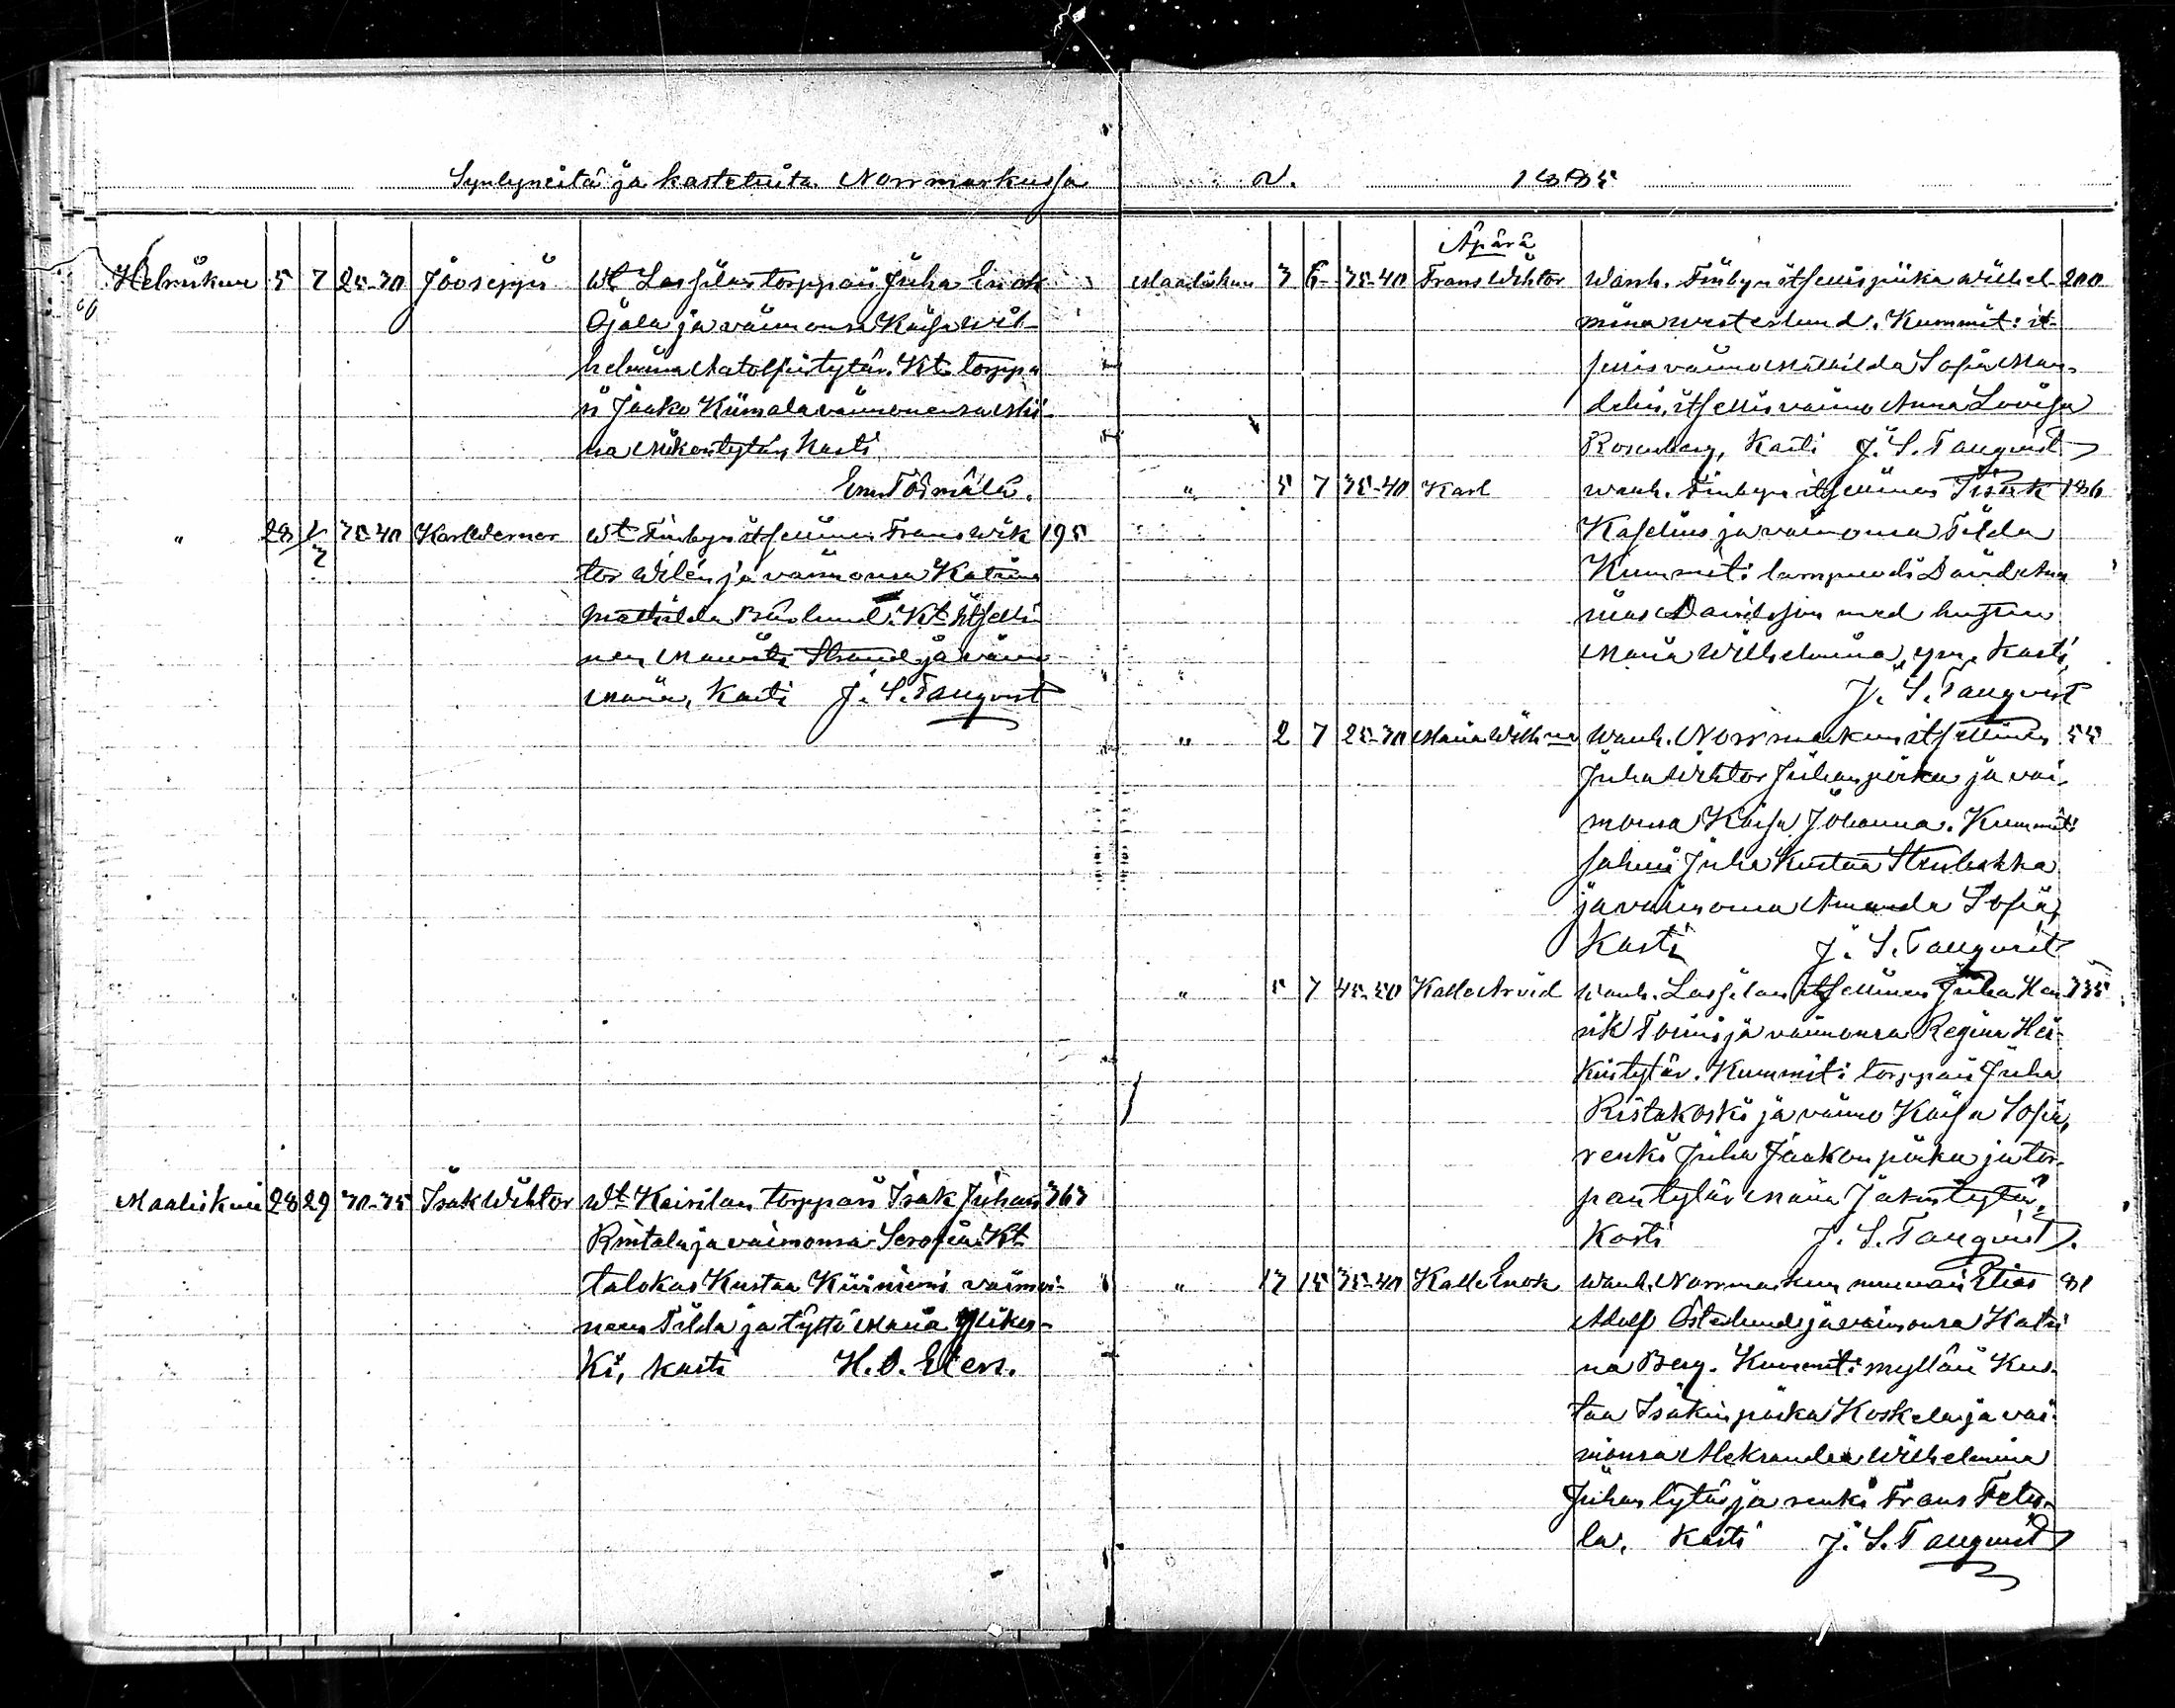 Syntyneitä ja kastetuita Norrmarkussa
Helmikuu 5 7 25-30 Jooseppi Wt Lassilan torppari Juha Enok
Ojala ja vaimonsa Kaisa Wil-
helmina Natolintytär. Kt. torppa
ri Jaako Kiimala vaimonensa Mii-
na Mikontytär, Kasti
Em. Törmälä.
" 28 1/3 35-40 Karl Werner Wt Finbyn itsellinen Frans Wik 195
tor Wilén ja vaimonsa Katrina
Mathilda Björlund. Kt. itselli
nen Mauritz Strand ja vaimo
Maria, Kasti J. S. Tanqvist
Maaliskuu 28 29 30-35 Isak Wihtor Wt Kairilan torppari Isak Juhani 363
Rintala ja vaimonsa Serafia. Kt.
talokas Kustaa Kiviniemi vaimoi-
neen Tilda ja tyttö Maria Ylikos-
ki, kasti H. O. Eken.
v. 1885
Äpärä
Maaliskuu 3 6 35-40 Frans Wihtor Wanh. Finbyn itsellispiika Wilhel- 200
mina Westerlund. Kummit: it-
sellis vaimo Mathilda Sofia
itsellis vaimo Anna Lovisa
Rosenberg, Kasti J. S. Tanqvist
" 5 7 35-40 Karl Wanh. Finbyn itsellinen Isak 186
Kaselius ja vaimonsa Tilda
Kummit: lampuodi David
Davidsson med hustru
Maria Wilhelmina, ym. Kasti
J. S. Tanqvist
" 2 7 25-30 Maria Wilh:na Wanh. Norrmarkun itsellinen 55
Juha Wihtor Juhanpoika ja vai-
monsa Kaisa Johanna. Kummit:
Juha Kustaa
ja vaimonsa Amanda Sofia,
Kasti J. S. Tanqvist
" 5 7 45-50 Kalle Arvid Wanh. Lassilan itsellinen Juha Hen 335
rik Toimi ja vaimonsa Regina Hei-
kintytär. Kummit: torppari Juha
Ristakoski ja vaimo Kaisa Sofia,
renki Juha Jaakonpoika ja tor-
parintytär Maria Jakintytär,
Kasti J. S. Tanqvist.
" 13 15 35-40 Kalle Enok Wanh. Norrmarkun muurari Elias 81
Adolf Österlund ja vaimonsa Katri
na Berg. Kummit: mylläri Kus-
taa Isakinpoika Koskela ja vai-
monsa Aleksandra Wilhelmina
Juhantytär ja renki Frans
la, Kasti J. S. Tanqvist